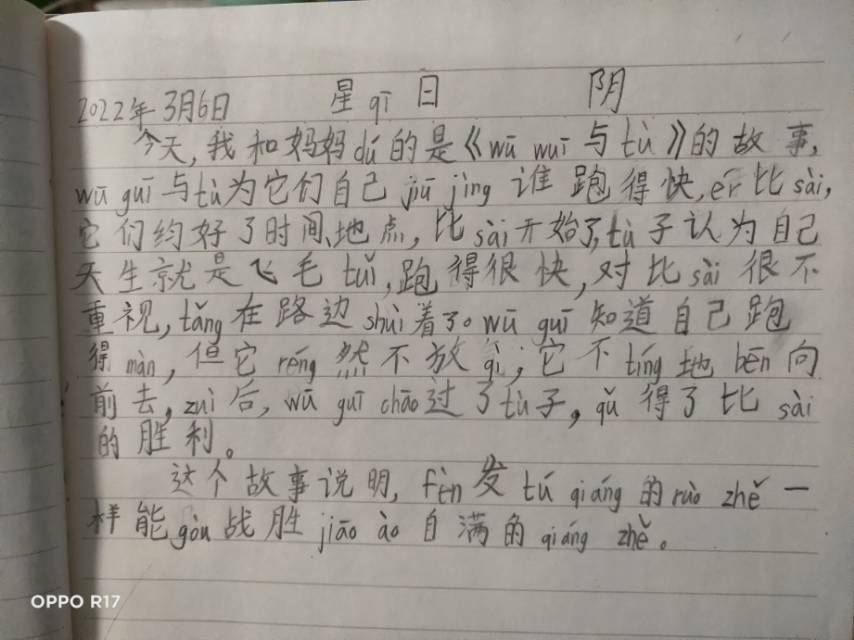 2022年3月6日 星qī日 阴
今天,我和妈妈dú的是《wū wuī与tù》的故事,
wū guī与tù为它们自己jiū jìng谁跑得快,ér比sài,
它们约好了时间、地点,比sài开始了,tù子认为自己
天生就是飞毛tuǐ,跑得很快,对比sài很不
重视,tǎng在路边shuì着了。wū guī知道自己跑
得màn,但它réng然不放qì,它不tíng地bēn向
前去,zuì后,wū guī chāo过了tù子,qǔ得了比sài
的胜利。
这个故事说明,fèn发tú qiáng的ruò zhě一
样能gòu战胜jiāo ào自满的qiáng zhě。
OPPO R17